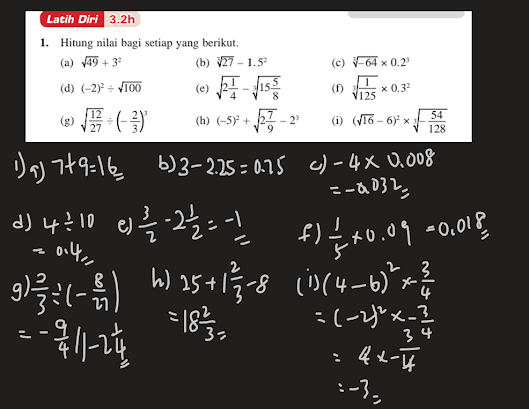 Latih Diri 3.2h
1. Hitung nilai bagi setiap yang berikut.
(a) √49 + 3² (b) ∛27 – 1.5² (c) ∛–64 × 0.2³
(d) (–2)² ÷ √100 (e) √2 1/4 – ∛15 5/8 (f) ∛1/125 × 0.3²
(g) √12/27 ÷ (–2/3)³ (h) (–5)² + √2 7/9 – 2³ (i) (√16 – 6)² × ∛–54/128
1) a) 7+9=16 b) 3–2.25=0.75 c) –4 × 0.008
=–0.032
d) 4÷10 e) 3/2 – 2 1/2 = –1 f) 1/5 × 0.09 =0.018
= 0.4
g) 2/3 ÷ (– 8/27) h) 25 + 1 2/3 – 8 (i) (4–6)² × – 3/4
= – 9/4 // –2 1/4 = 18 2/3 = (–2)² × – 3/4
= 4 × – 3/4
= –3